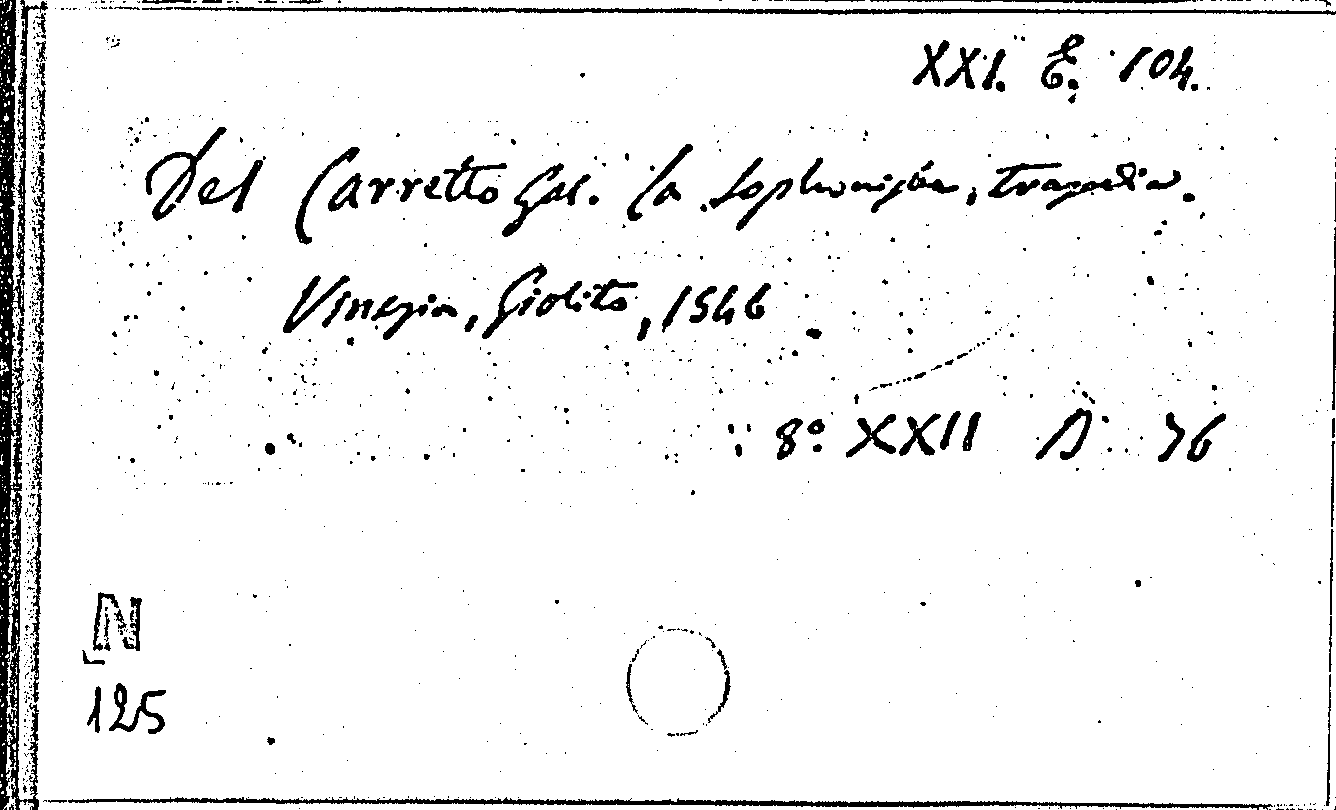 XXI. E. 104.
Del Carretto Gal. La Sophonisba, tragedia.
Vinegia, Giolito, 1546
8º XXII D 76
N
125